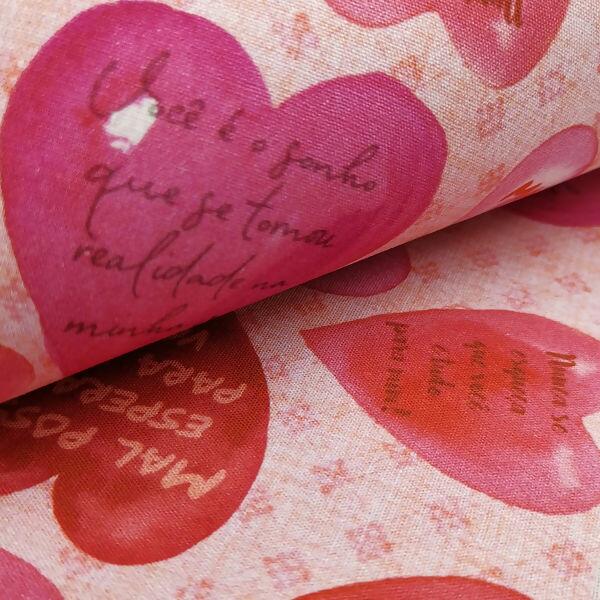 Você é o sonho
que se tornou
realidade na
minha
MAL POS
ESPERA
PARA
Nunca se
esqueça
que você
é tudo
para mim!